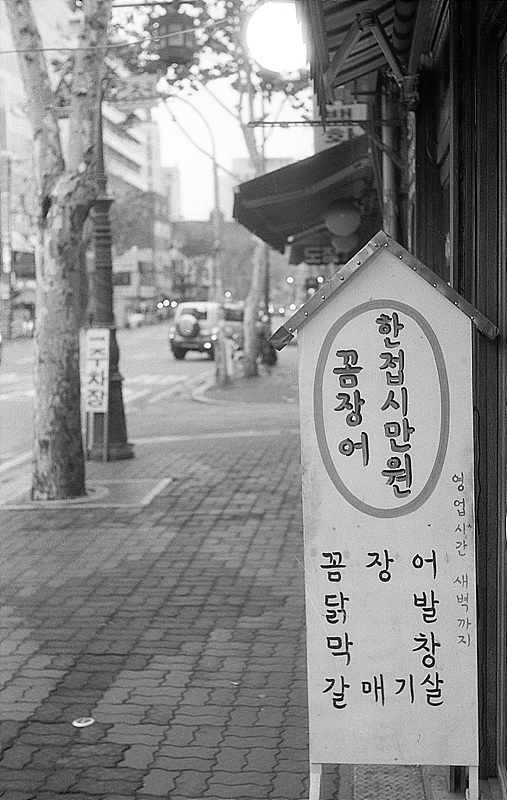 한접시만원
꼼장어
영업시간 새벽까지
꼼 장 어
닭 발
막 창
갈매기살
주차장